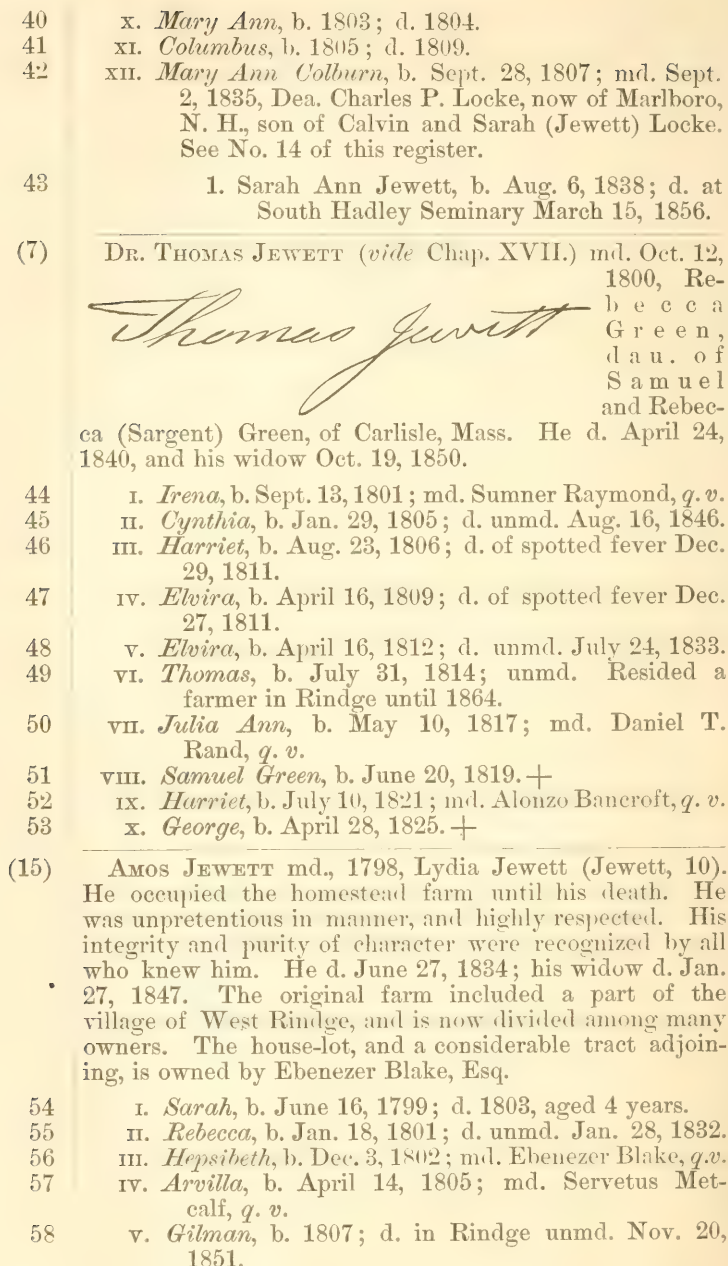 40 x. Mary Ann, b. 1803; d. 1804.
41 XI. Columbus, b. 1805; d. 1809.
42 XII. Mary Ann Colburn, b. Sept. 28, 1807; md. Sept.
2, 1835, Dea. Charles P. Locke, now of Marlboro,
N. H., son of Calvin and Sarah (Jewett) Locke.
See No. 14 of this register.
43 1. Sarah Ann Jewett, b. Aug. 6, 1838; d. at
South Hadley Seminary March 15, 1856.
(7) DR. THOMAS JEWETT (vide Chap. XVII.) md. Oct. 12,
1800, Re-
becca
Thomas Jewett
Green,
dau. of
Samuel
and Rebec-
ca (Sargent) Green, of Carlisle, Mass. He d. April 24,
1840, and his widow Oct. 19, 1850.
44 I. Irena, b. Sept. 13, 1801; md. Sumner Raymond, q. v.
45 II. Cynthia, b. Jan. 29, 1805; d. unmd. Aug. 16, 1846.
46 III. Harriet, b. Aug. 23, 1806; d. of spotted fever Dec.
29, 1811.
47 IV. Elvira, b. April 16, 1809; d. of spotted fever Dec.
27, 1811.
48 V. Elvira, b. April 16, 1812; d. unmd. July 24, 1833.
49 VI. Thomas, b. July 31, 1814; unmd. Resided a
farmer in Rindge until 1864.
50 VII. Julia Ann, b. May 10, 1817; md. Daniel T.
Rand, q. v.
51 VIII. Samuel Green, b. June 20, 1819.+
52 IX. Harriet, b. July 10, 1821; md. Alonzo Bancroft, q. v.
53 X. George, b. April 28, 1825.+
(15) AMOS JEWETT md., 1798, Lydia Jewett (Jewett, 10).
He occupied the homestead farm until his death. He
was unpretentious in manner, and highly respected. His
integrity and purity of character were recognized by all
who knew him. He d. June 27, 1834; his widow d. Jan.
27, 1847. The original farm included a part of the
village of West Rindge, and is now divided among many
owners. The house-lot, and a considerable tract adjoin-
ing, is owned by Ebenezer Blake, Esq.
54 I. Sarah, b. June 16, 1799; d. 1803, aged 4 years.
55 II. Rebecca, b. Jan. 18, 1801; d. unmd. Jan. 28, 1832.
56 III. Hepsibeth, b. Dec. 3, 1802; md. Ebenezer Blake, q.v.
57 IV. Arvilla, b. April 14, 1805; md. Servetus Met-
calf, q. v.
58 V. Gilman, b. 1807; d. in Rindge unmd. Nov. 20,
1851.